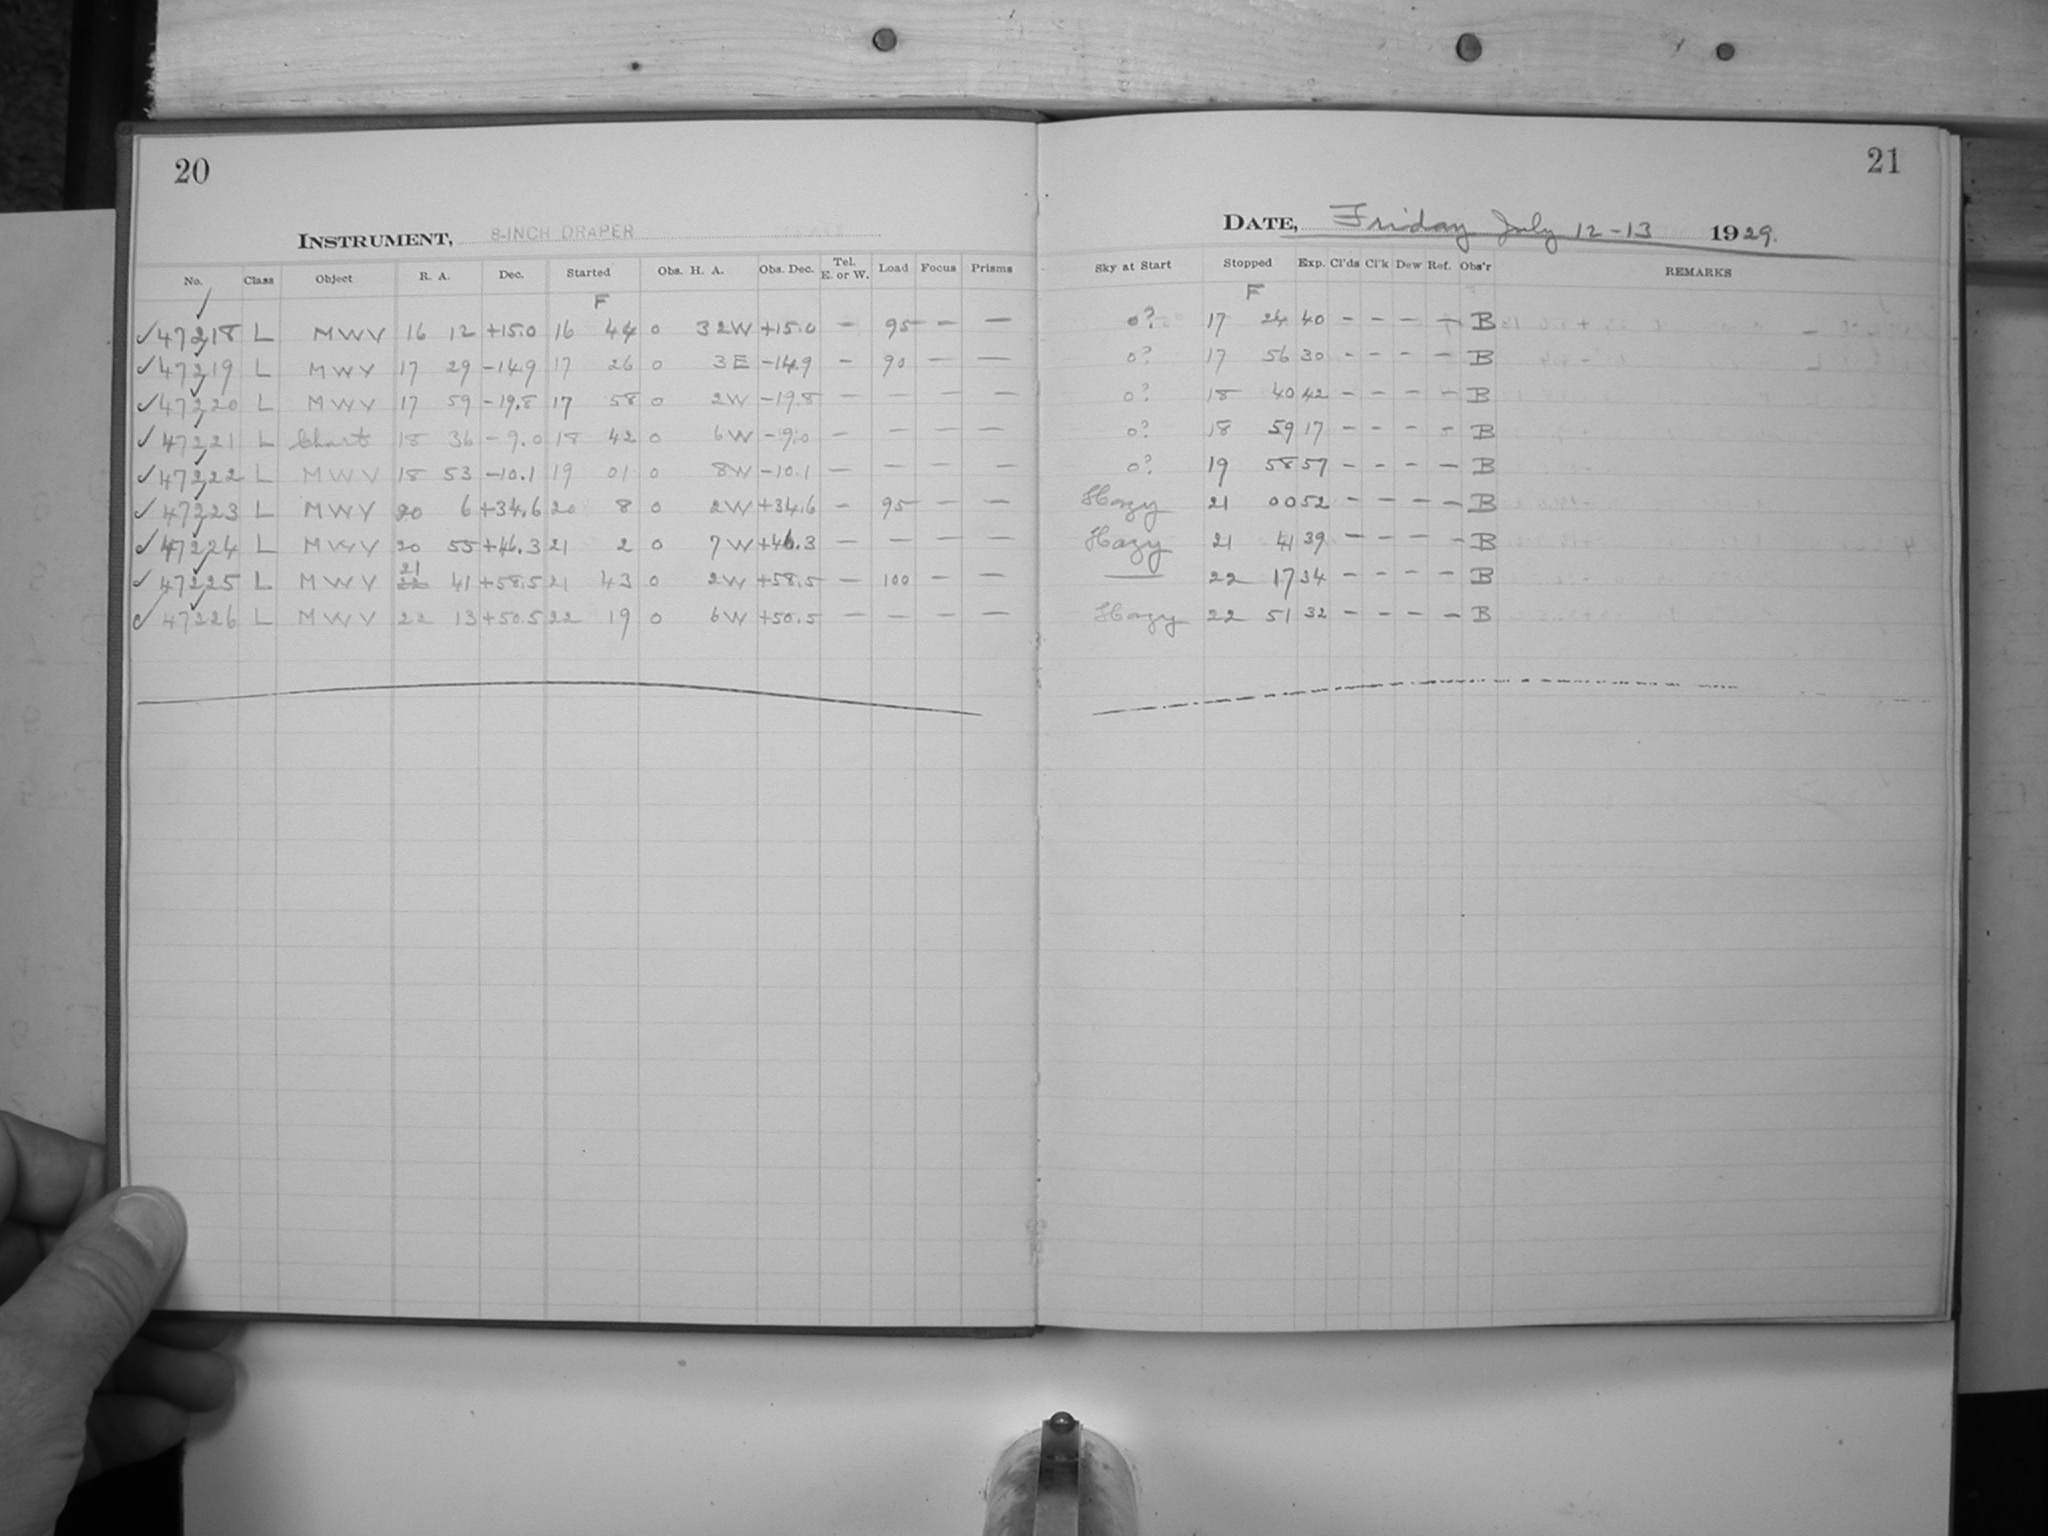 20
INSTRUMENT, 8-INCH DRAPER
No. Class Object R. A. Dec. Started Obs. H. A. Obs. Dec. Tel. E. or W. Load Focus Prisms
F
✓ 47218 L MWV 16 12 +15.0 16 44 0 32W +15.0 – 95 – –
✓ 47219 L MWV 17 29 -14.9 17 26 0 3E -14.9 – 90 – –
✓ 47220 L MWV 17 59 -19.8 17 58 0 2W -19.8 – – – –
✓ 47221 L Chart 18 36 -9.0 18 42 0 6W -9.0 – – – –
✓ 47222 L MWV 18 53 -10.1 19 01 0 8W -10.1 – – – –
✓ 47223 L MWV 20 6 +34.6 20 8 0 2W +34.6 – 95 – –
✓ 47224 L MWV 20 55 +46.3 21 2 0 7W +46.3 – – – –
✓ 47225 L MWV 21 22 41 +58.5 21 43 0 2W +58.5 – 100 – –
✓ 47226 L MWV 22 13 +50.5 22 19 0 6W +50.5 – – – –
21
DATE, Friday July 12-13 1929.
Sky at Start Stopped Exp. Cl'ds Cl'k Dew Ref. Obs'r REMARKS
F
0? 17 24 40 – – – – B
0? 17 56 30 – – – – B
0? 18 40 42 – – – – B
0? 18 59 17 – – – – B
0? 19 58 57 – – – – B
Hazy 21 00 52 – – – – B
Hazy 21 41 39 – – – – B
— 22 17 34 – – – – B
Hazy 22 51 32 – – – – B